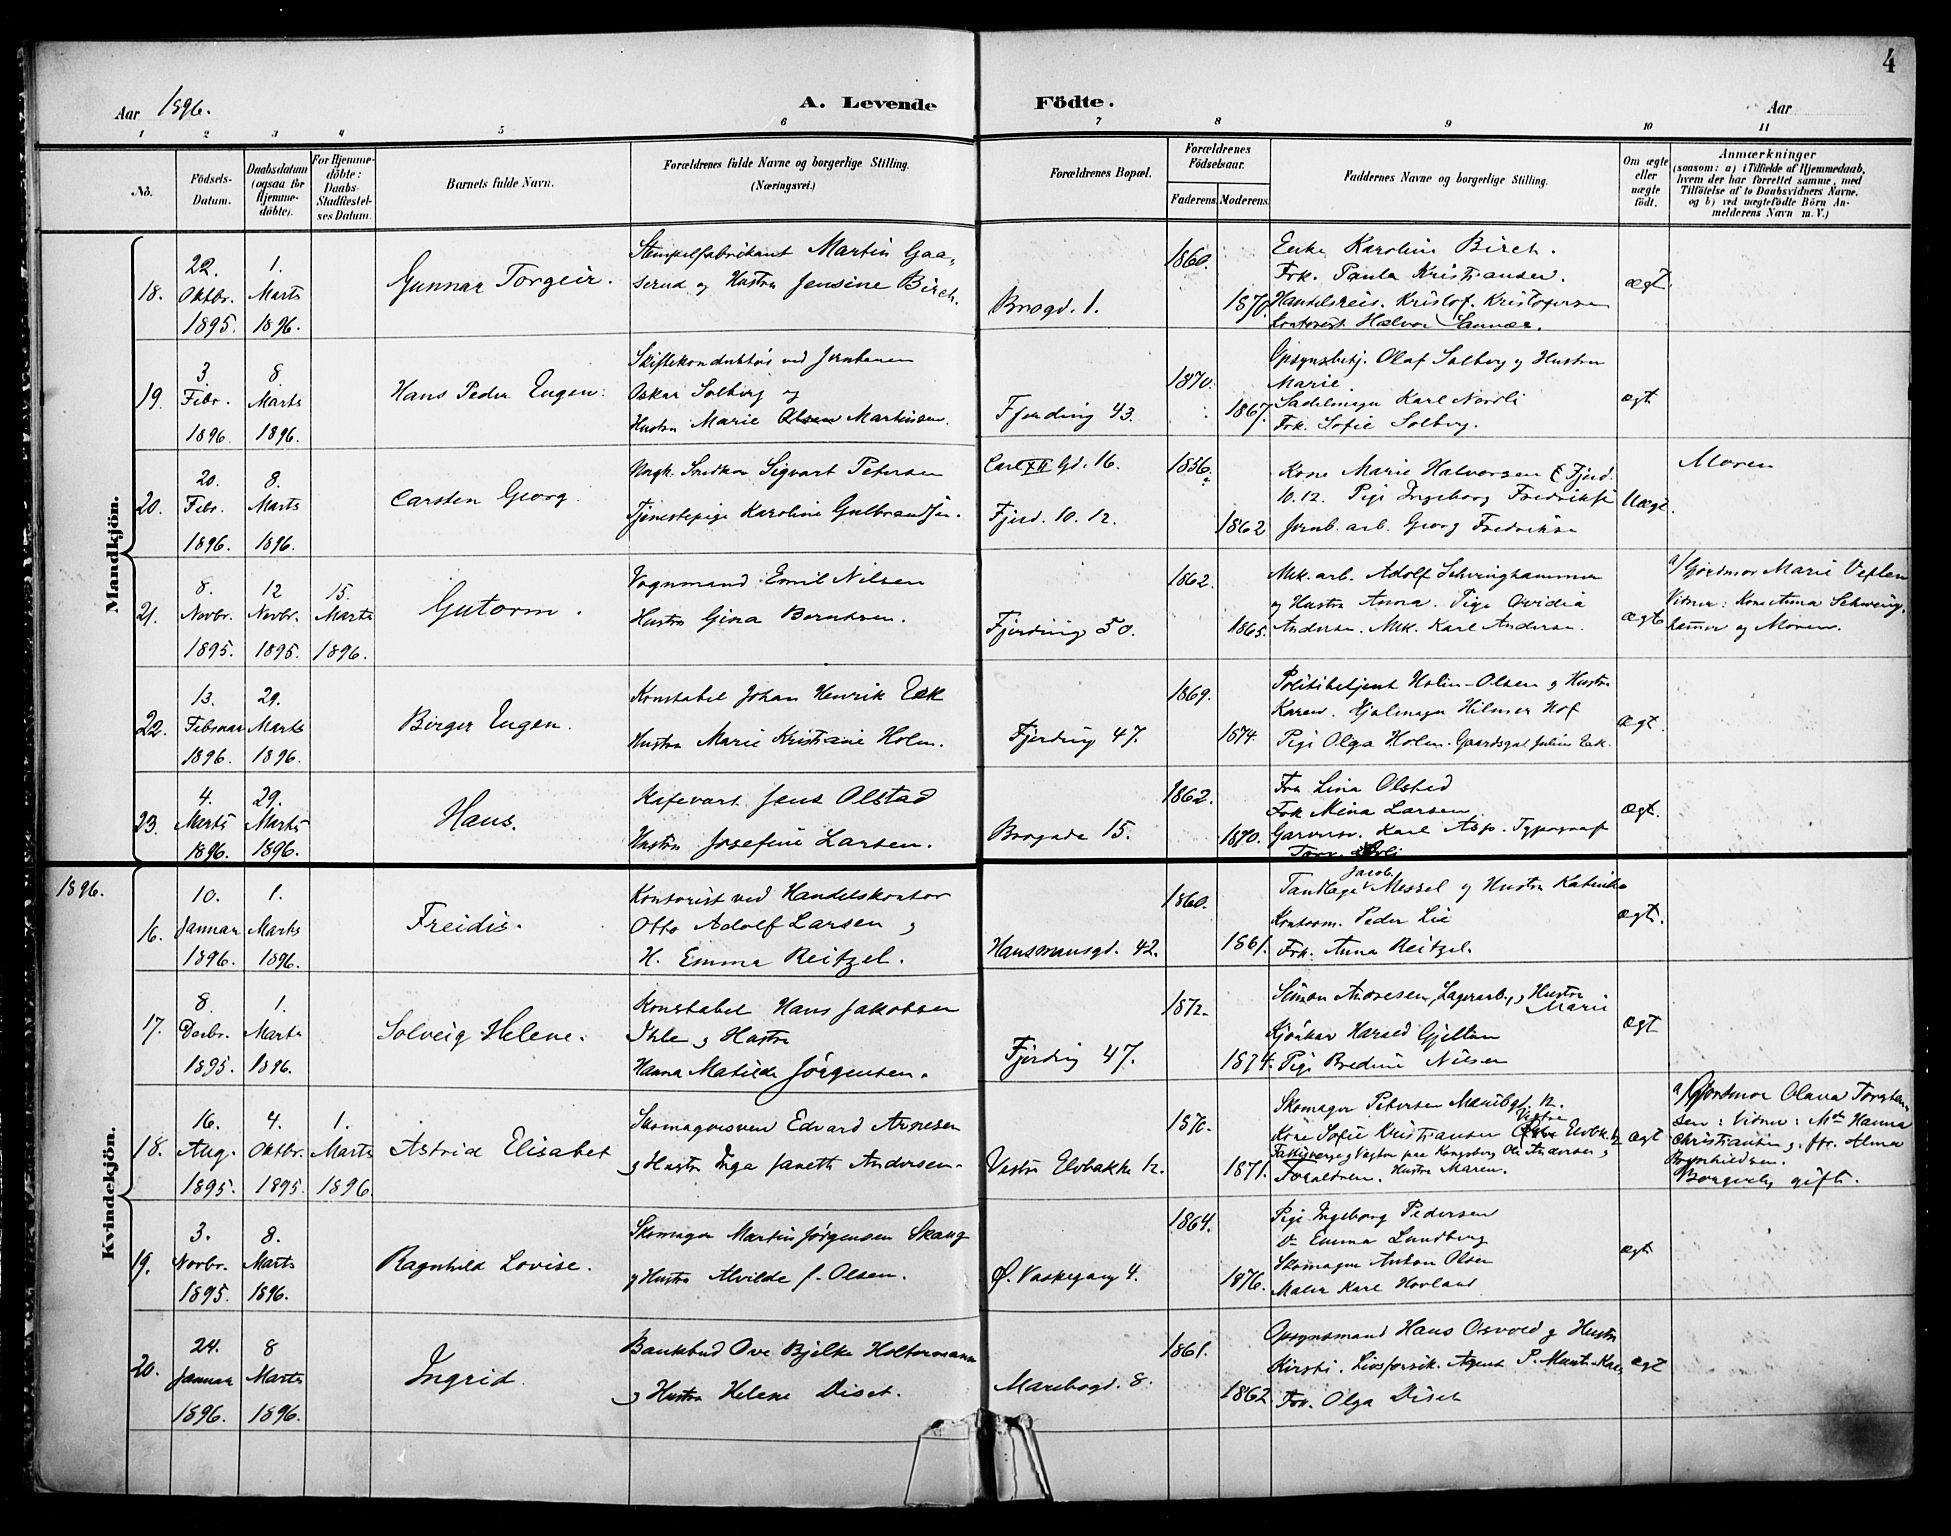 4
Aar 1896.
A. Levende Födte.
Aar
1 2 3 4 5 6 7 8 9 10 11
No.
Födsels-Datum.
Daabsdatum (ogsaa for Hjemmedöbte).
For Hjemmedöbte: Daabs-Stadfestelses Datum.
Barnets fulde Navn.
Forældrenes fulde Navne og borgerlige Stilling. (Næringsvei.)
Forældrenes Bopæl.
Forældrenes Födselsaar.
Faderens. Moderens.
Faddernes Navne og borgerlige Stilling.
Om ægte eller uægte födt.
Anmærkninger
(saasom: a) i Tilfælde af Hjemmedaab, hvem der har forrettet samme, med Tilföielse af to Daabsvidners Navne, og b) ved uægtefödte Börn Anmelderens Navn m. V.)
Mandkjön.
18.
22. Oktbr. 1895.
1. Marts 1896.
Gunnar Torgeir.
Stempelfabrikant Martin Gaa-
serud og Hustru Jensine Birch.
Brogd. 1.
1860.
1870.
Enke Karoline Birch.
Frk. Paula Kristiansen.
Handelsreis. Kristof. Kristofersen
Kontorist Halvor
ægt.
19.
3 Febr. 1896.
8. Marts 1896.
Hans Peder Eugen.
Skiftekonduktør ved Jernbanen
Oskar Solberg og
Hustru Marie Olsen Martinsen.
Fjerding 43.
1870.
1867.
Opsynsbetj. Olaf Solberg og Hustru
Marie.
Sadelmager Karl Nordli
Frk. Sofie Solberg.
ægt.
20.
20. Febr. 1896.
8. Marts 1896.
Carsten Georg.
Sigvart Petersen
Tjenestepige Karoline Gulbrandsen.
Carl XII Gd. 16.
Fjerd. 10. 12.
1856.
1862
Kone Marie Halvorsen Fjerd.
10. 12. Pige Ingeborg Fredriksen
Jernb. arb. Georg Fredriksen
Uægt.
Moren
21.
8. Novbr. 1895.
12 Novbr. 1895.
15. Marts 1896.
Gutorm.
Vognmand Emil Nilsen
Hustru Gina Berntsen.
Fjerding 50.
1862.
1865.
Mek. arb. Adolf Schwinghammer
og Hustru Anna. Pige Ovidia
Andersen. Mek. Karl Andersen.
ægt
a/ Gjordmor Marie Veflen
Vidner: Kone Anna Schwing-
hamer og Moren.
22.
13. Februar 1896.
29. Marts 1896.
Birger Eugen.
Konstabel Johan Henrik Eek
Hustru Marie Kristiane Holm.
Fjerding 47.
1869.
1874.
Politibetjent Holm-Olsen og Hustru
Karen. Hjulmager Hilmer Hof
Pige Olga Holm. Gaardsgut Julius Eek.
ægt.
23.
4. Marts 1896.
29. Marts 1896.
Hans.
Kafevært Jens Olstad
Hustru Josefine Larsen.
Brogade 15.
1862.
1870.
Fru Lina Olstad
Frk Mina Larsen
Garversv. Karl Asp. Typograf
ægt.
1896.
Kvindekjön.
16.
10. Januar 1896.
1. Marts 1896.
Freidis.
Kontorist ved Handelskontor
Otto Adolf Larsen og
H. Emma Reitzel.
Hansmansgd. 42.
1860.
1861.
Tandlæge Jacob Messel og Hustru Katinka
Kontorm. Peder Lie
Frk. Anna Reitzel.
ægt.
17.
8. Decbr. 1895.
1. Marts 1896.
Solveig Helene.
Konstabel Hans Jakobsen
Ihle og Hustru
Hanna Matilde Jørgensen.
Fjerding 47.
1872.
1874.
Simon Andresen, Lagerarb. og Hustru
Marie
Harald Gjeltun
Pige Bredine Nilsen
ægt
18.
16. Aug. 1895.
4. Oktbr. 1895.
1. Marts 1896
Astrid Elisabet
Skomagersvend Edvard Arnesen
og Hustru Inga Janette Andersen.
Vestre Elvbakke 12.
1870.
1871.
Skomager Petersen Maribogd. 12.
Kone Sofie Kristiansen Vestre Elvbk. 12
Fattigverge Vestre paa Kongsberg Ole Andersen og
Forældrene. Hustru Maren.
ægt
a/ Gjordmor Olava Torsten-
sen: Vidner: Md Hanna
Christiansen og fr. Alma
Borgerlig gift.
19.
3. Novbr. 1895.
8. Marts 1896.
Ragnhild Lovise.
Skomager Martin Jørgensen Skaug
og Hustru Alvilde f. Olsen.
Ø. Vaskegang 4.
1864.
1876.
Pige Ingeborg Pedersen
Do Emma Lundberg
Skomager Anton Olsen
Maler Karl Hovland
ægt
20.
24. Januar 1896.
8 Marts 1896.
Ingrid.
Bankbud Ove Bjelke Holtermann
og Hustru Helene Diset.
Maribogd. 8.
1861.
1862
Opsynsmand Hans Osvold og Hustru
Kirsti. Livsforsik. Agent P.
Frk. Olga Diset
ægt